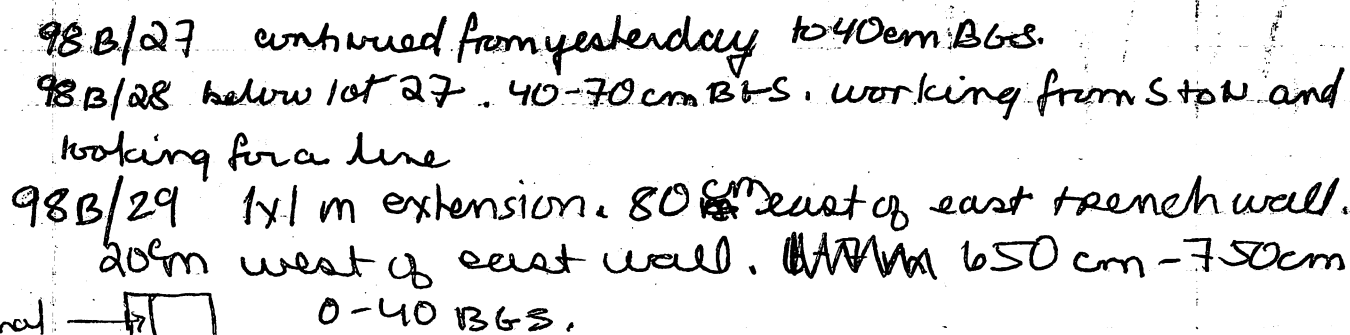 98B/27 continued from yesterday to 40cm BGS.
98B/28 below lot 27. 40-70cm BGS. working from S to N and
looking for a line
98B/29 1x1 m extension. 80 cm east of east trench wall.
20cm west of east wall. 650 cm - 750cm
0-40 BGS.